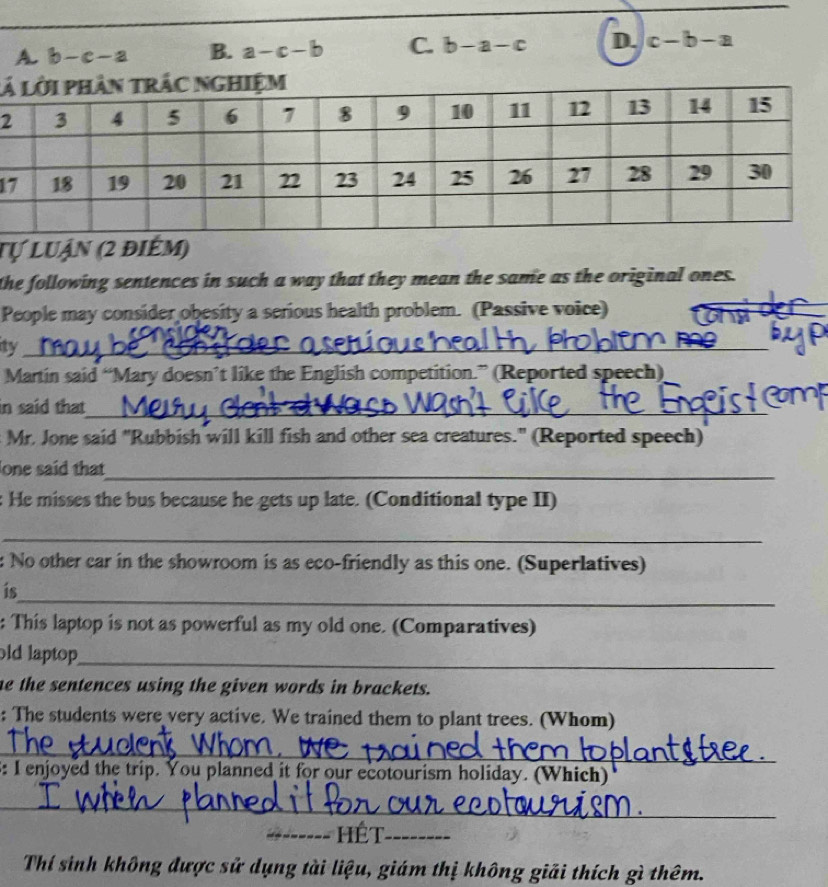 A. b – c – a B. a – c – b C. b – a – c D. c – b – a
Á LỜI PHẦN TRẮC NGHIỆM
2 3 4 5 6 7 8 9 10 11 12 13 14 15
17 18 19 20 21 22 23 24 25 26 27 28 29 30
TỰ LUẬN (2 ĐIỂM)
the following sentences in such a way that they mean the same as the original ones.
People may consider obesity a serious health problem. (Passive voice) consider
ity may be consider a serious health problem by p
Martin said “Mary doesn’t like the English competition.” (Reported speech)
in said that wasn't like the comp
Mr. Jone said "Rubbish will kill fish and other sea creatures." (Reported speech)
Jone said that
: He misses the bus because he gets up late. (Conditional type II)
: No other car in the showroom is as eco-friendly as this one. (Superlatives)
is
: This laptop is not as powerful as my old one. (Comparatives)
old laptop
ne the sentences using the given words in brackets.
: The students were very active. We trained them to plant trees. (Whom)
The students Whom. we trained them to plant tree.
: I enjoyed the trip. You planned it for our ecotourism holiday. (Which)
I planned it for our ecotourism.
-------- HẾT--------
Thí sinh không được sử dụng tài liệu, giám thị không giải thích gì thêm.